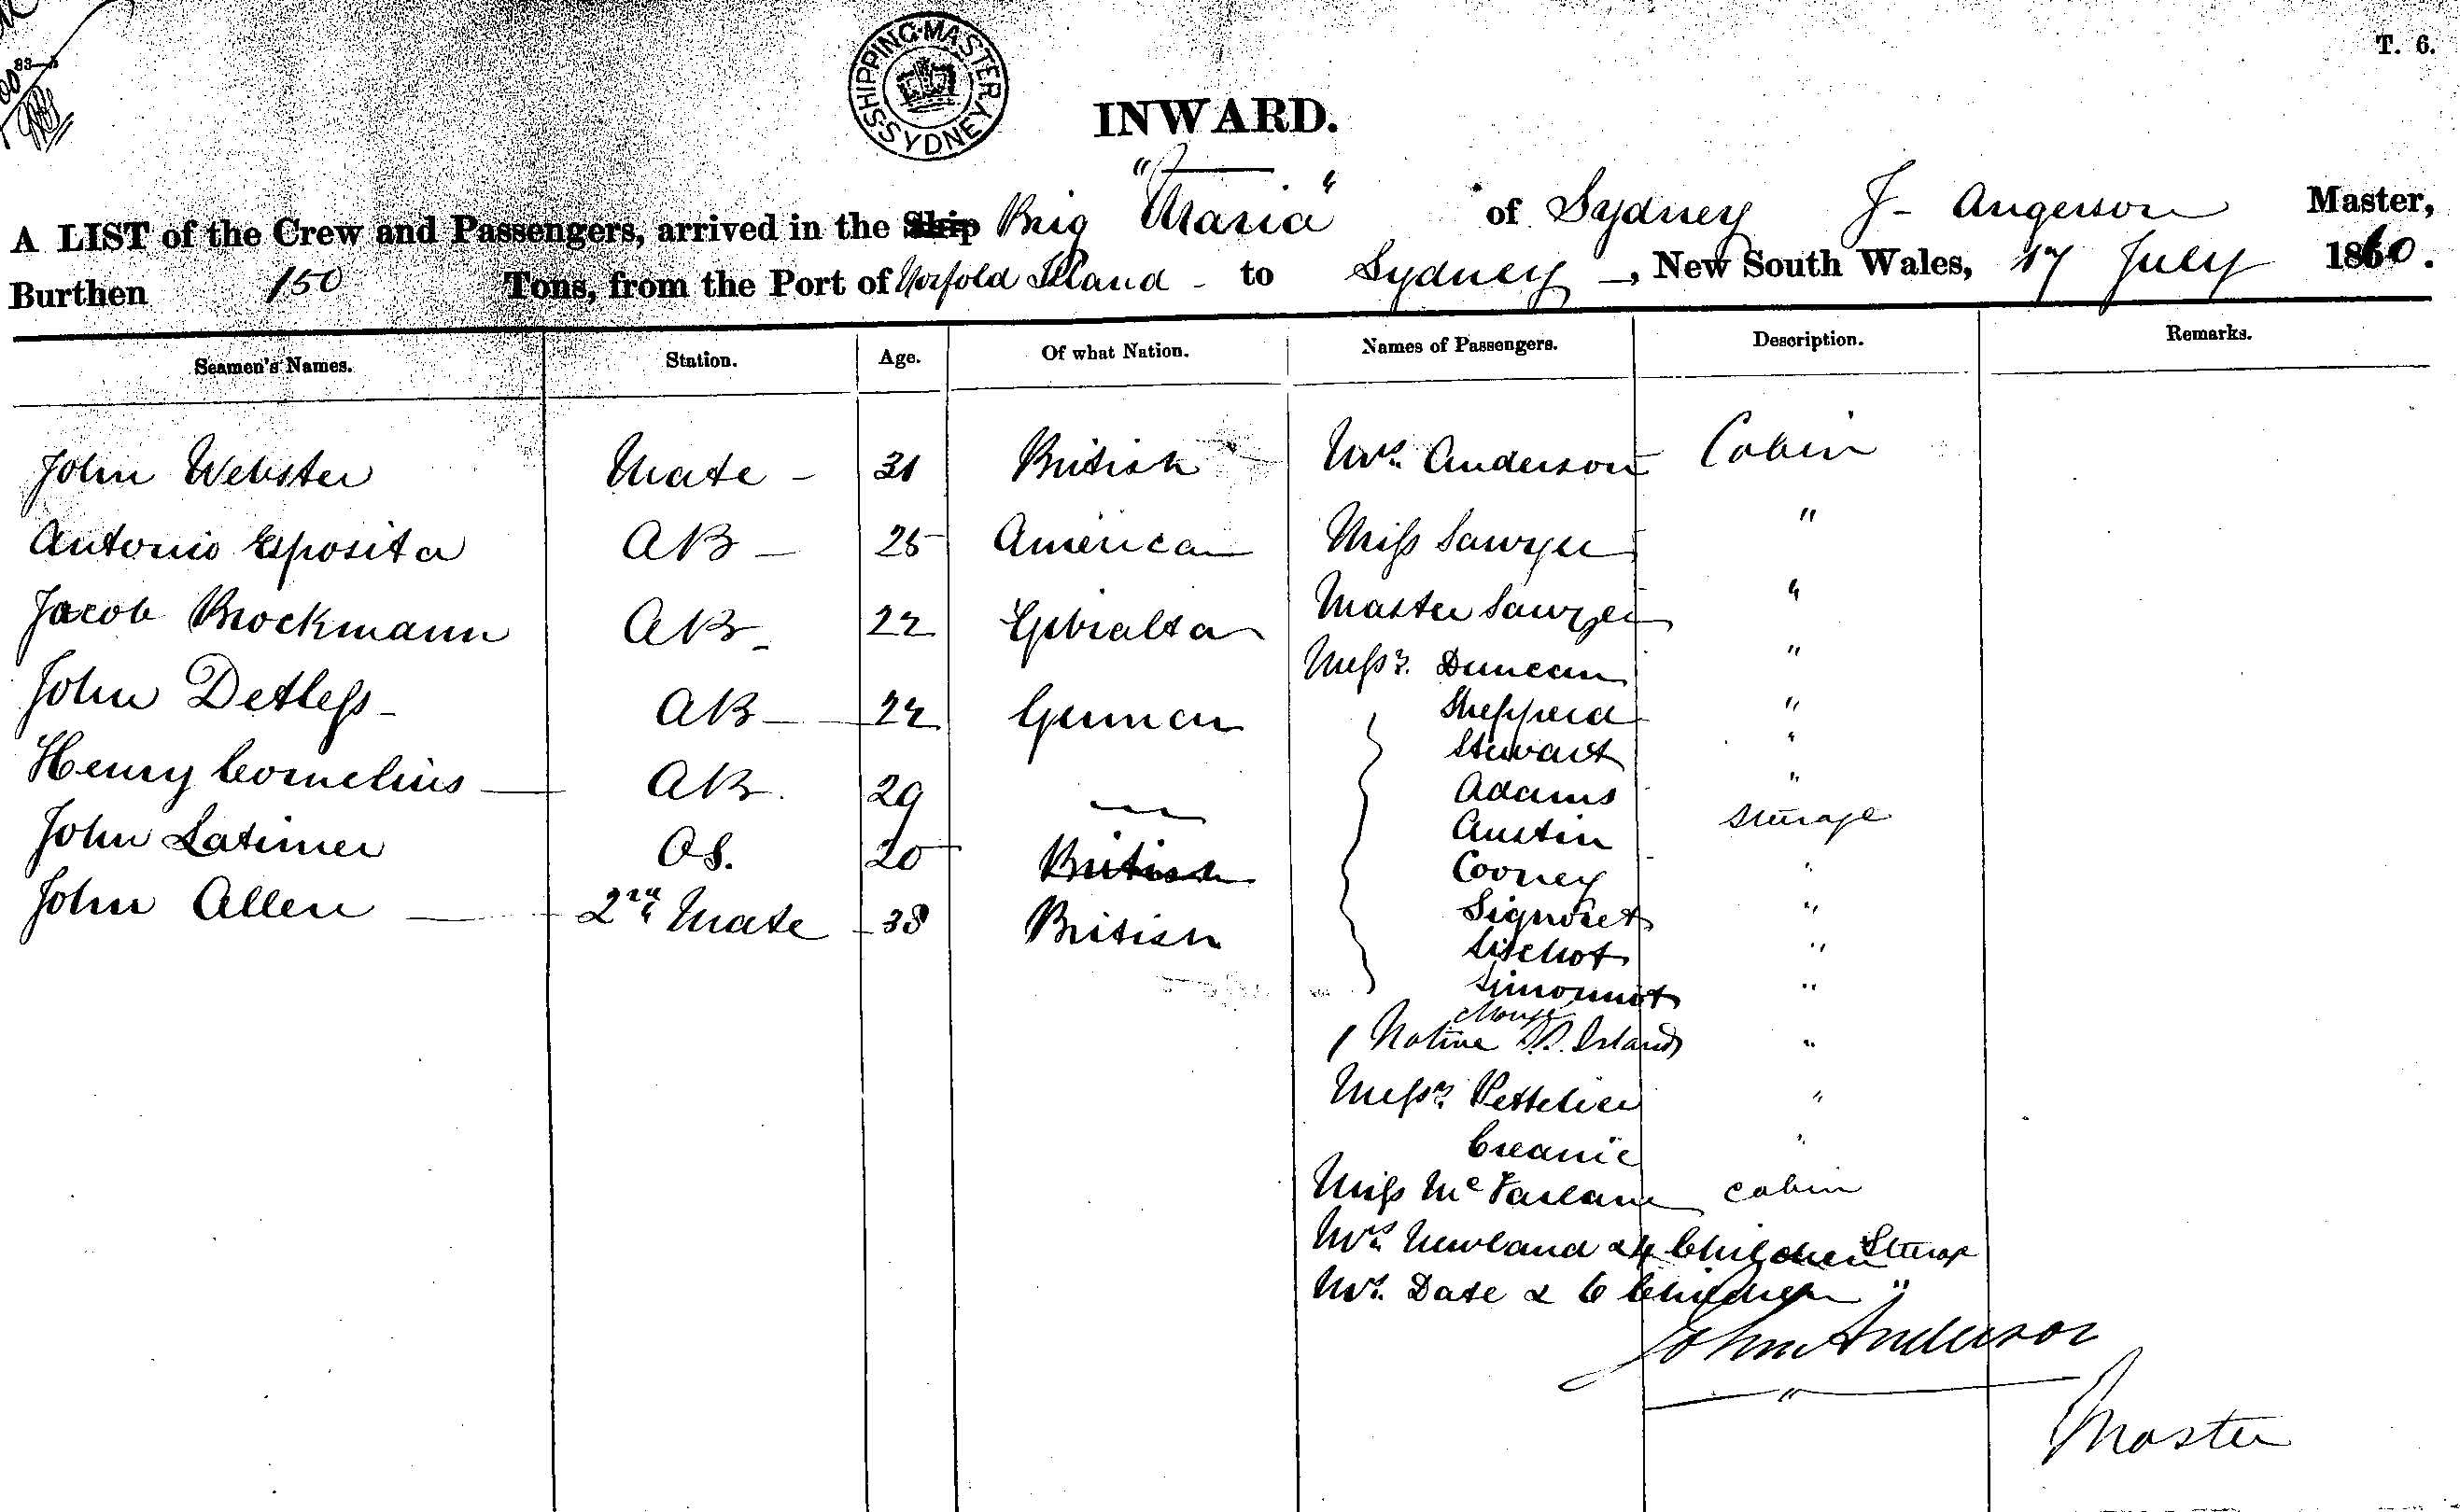 T. 6.
83—5
SHIPPING MASTER SYDNEY
INWARD.
A LIST of the Crew and Passengers, arrived in the Ship Brig "Maria" of Sydney J- Anderson Master,
Burthen 150 Tons, from the Port of Norfold Island - to Sydney —, New South Wales, 17 July 1860.
Seamen's Names. Station. Age. Of what Nation. Names of Passengers. Description. Remarks.
John Webster Mate - 31 British Mrs. Anderson Cabin
Antonio Esposita AB - 25 American Miss Sawyer "
Jacob Brockmann AB - 22 Gibralta Master Sawyer "
Messrs. Duncan "
John Detlefs - AB - 22 German Shepperd "
Stewart "
Henry Cornelius — AB. 29 — Adams "
Austin Steerage
John Latimer OS. 20 British Cooney "
John Allen — 2nd Mate 38 British Signoret "
"
Simonnot "
1 Native Island "
Messrs. Pettelier "
"
Miss McFarlane Cabin
Mrs. Newland & 4 Children Steerage
Mrs. Date & 6 Children "
John Anderson
Master